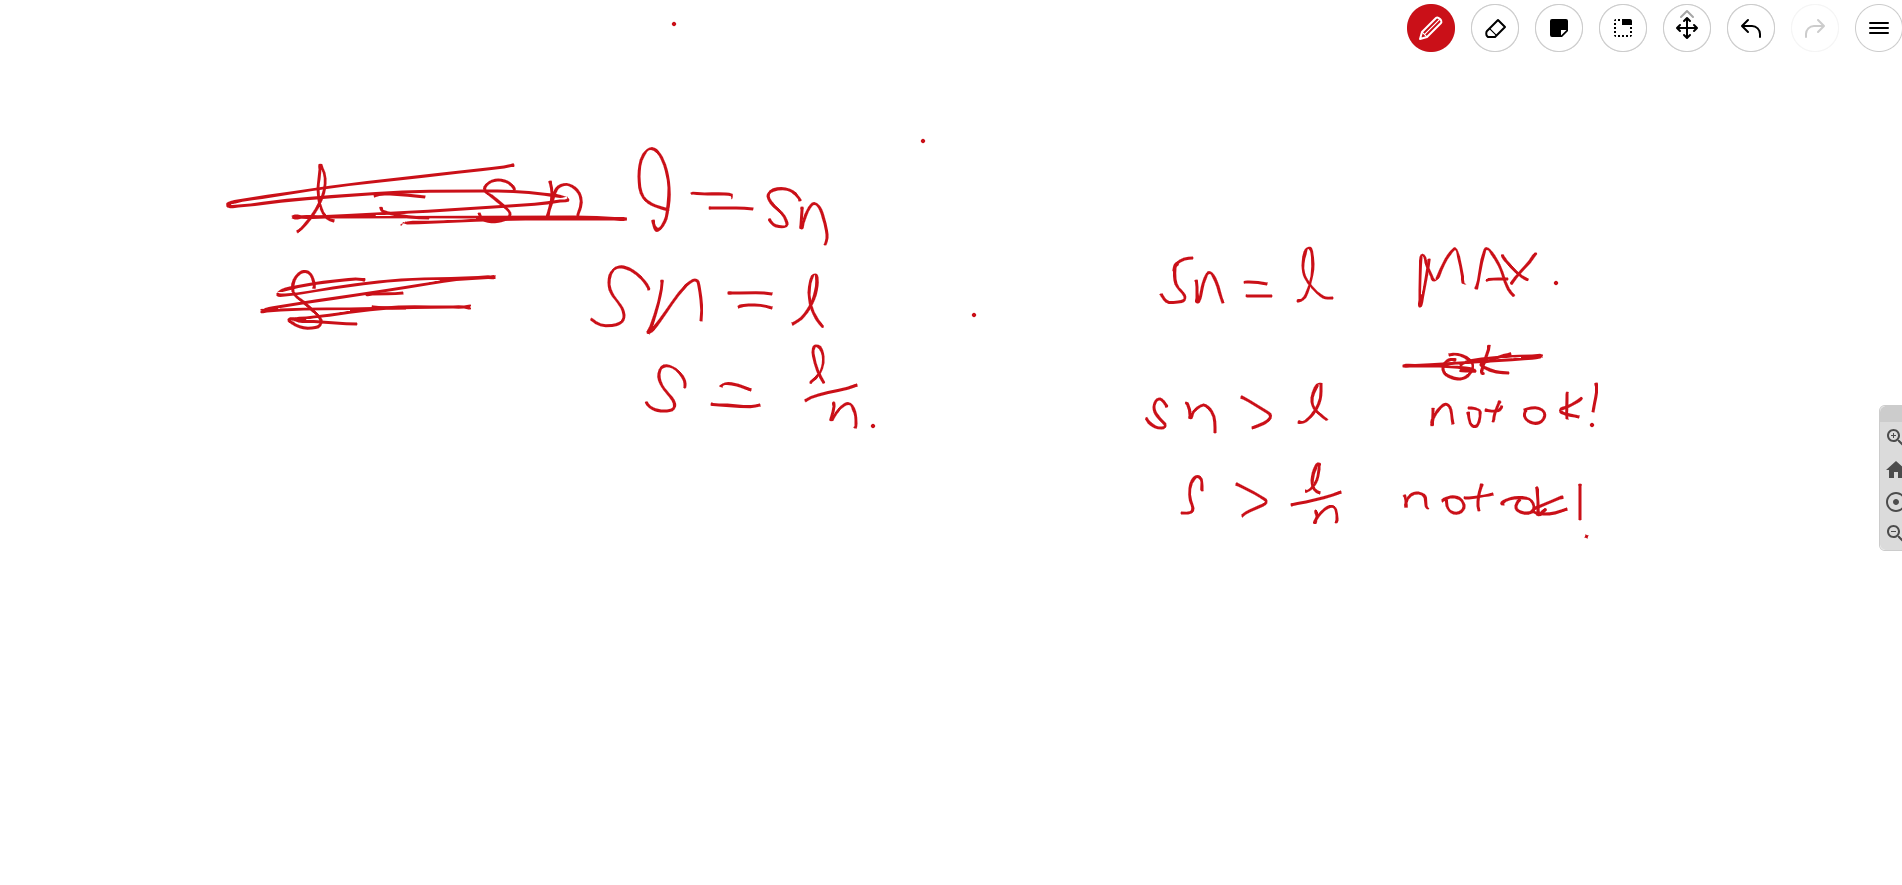 l = sn
l = sn
s =
sn = l
s = l/n.
sn = l MAX.
ok
sn > l not ok!
s > l/n not ok!